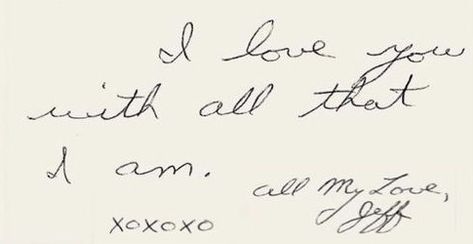 I love you
with all that
I am.
all My Love,
Jeff
xoxoxo